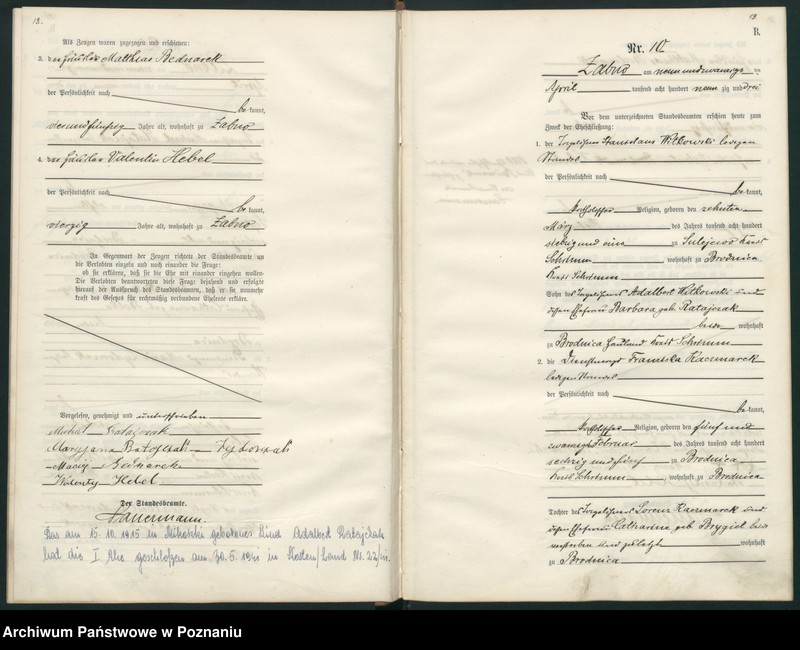 18.
Als Zeugen waren zugezogen und erschienen:
3. der Häusler Matthias Bednarek
der Persönlichkeit nach
be kannt,
vierundfünfzig Jahre alt, wohnhaft zu Żabno
4. der Häusler Valentin Hebel
der Persönlichkeit nach
be kannt,
vierzig Jahre alt, wohnhaft zu Żabno
In Gegenwart der Zeugen richtete der Standesbeamte an
die Verlobten einzeln und nach einander die Frage:
ob sie erklären, daß sie die Ehe mit einander eingehen wollen.
Die Verlobten beantworteten diese Frage bejahend und erfolgte
hierauf der Ausspruch des Standesbeamten, daß er sie nunmehr
kraft des Gesetzes für rechtmäßig verbundene Eheleute erkläre.
Vorgelesen, genehmigt und unterschrieben
Michał Ratajczak
Maryjana Ratajczak
Maciej Bednarek
Walenty Hebel
Der Standesbeamte.
Das am 15. 10. 1915 in geborenes Kind Adalbert Ratajczak
hat die I Ehe geschlossen am 30. 5. in /Land Nr.
19.
B.
Nr. 10
Żabno am neunundzwanzigsten
April tausend acht hundert neun zig und drei
Vor dem unterzeichneten Standesbeamten erschien heute zum
Zweck der Eheschließung:
1. der Stanislaus Witkowski ledigen
Standes
der Persönlichkeit nach
be kannt,
katholischer Religion, geboren den zehnten
März des Jahres tausend acht hundert
siebzig und eins zu Sulejewo Kreis
Schrimm wohnhaft zu Brodnica
Kreis Schrimm
Sohn des Adalbert Witkowski und
dessen Ehefrau Barbara geb. Ratajczak
beide wohnhaft
zu Brodnica Hauland Kreis Schrimm
2. die Dienstmagd Franziska Kaczmarek
ledigen Standes
der Persönlichkeit nach
be kannt,
katholischer Religion, geboren den fünf und
zwanzigsten Februar des Jahres tausend acht hundert
sechzig und fünf zu Brodnica
Kreis Schrimm wohnhaft zu Brodnica
Tochter des Lorenz Kaczmarek und
dessen Ehefrau Catharina geb. Brygiel beide
verstorben und zuletzt wohnhaft
zu Brodnica
Archiwum Państwowe w Poznaniu